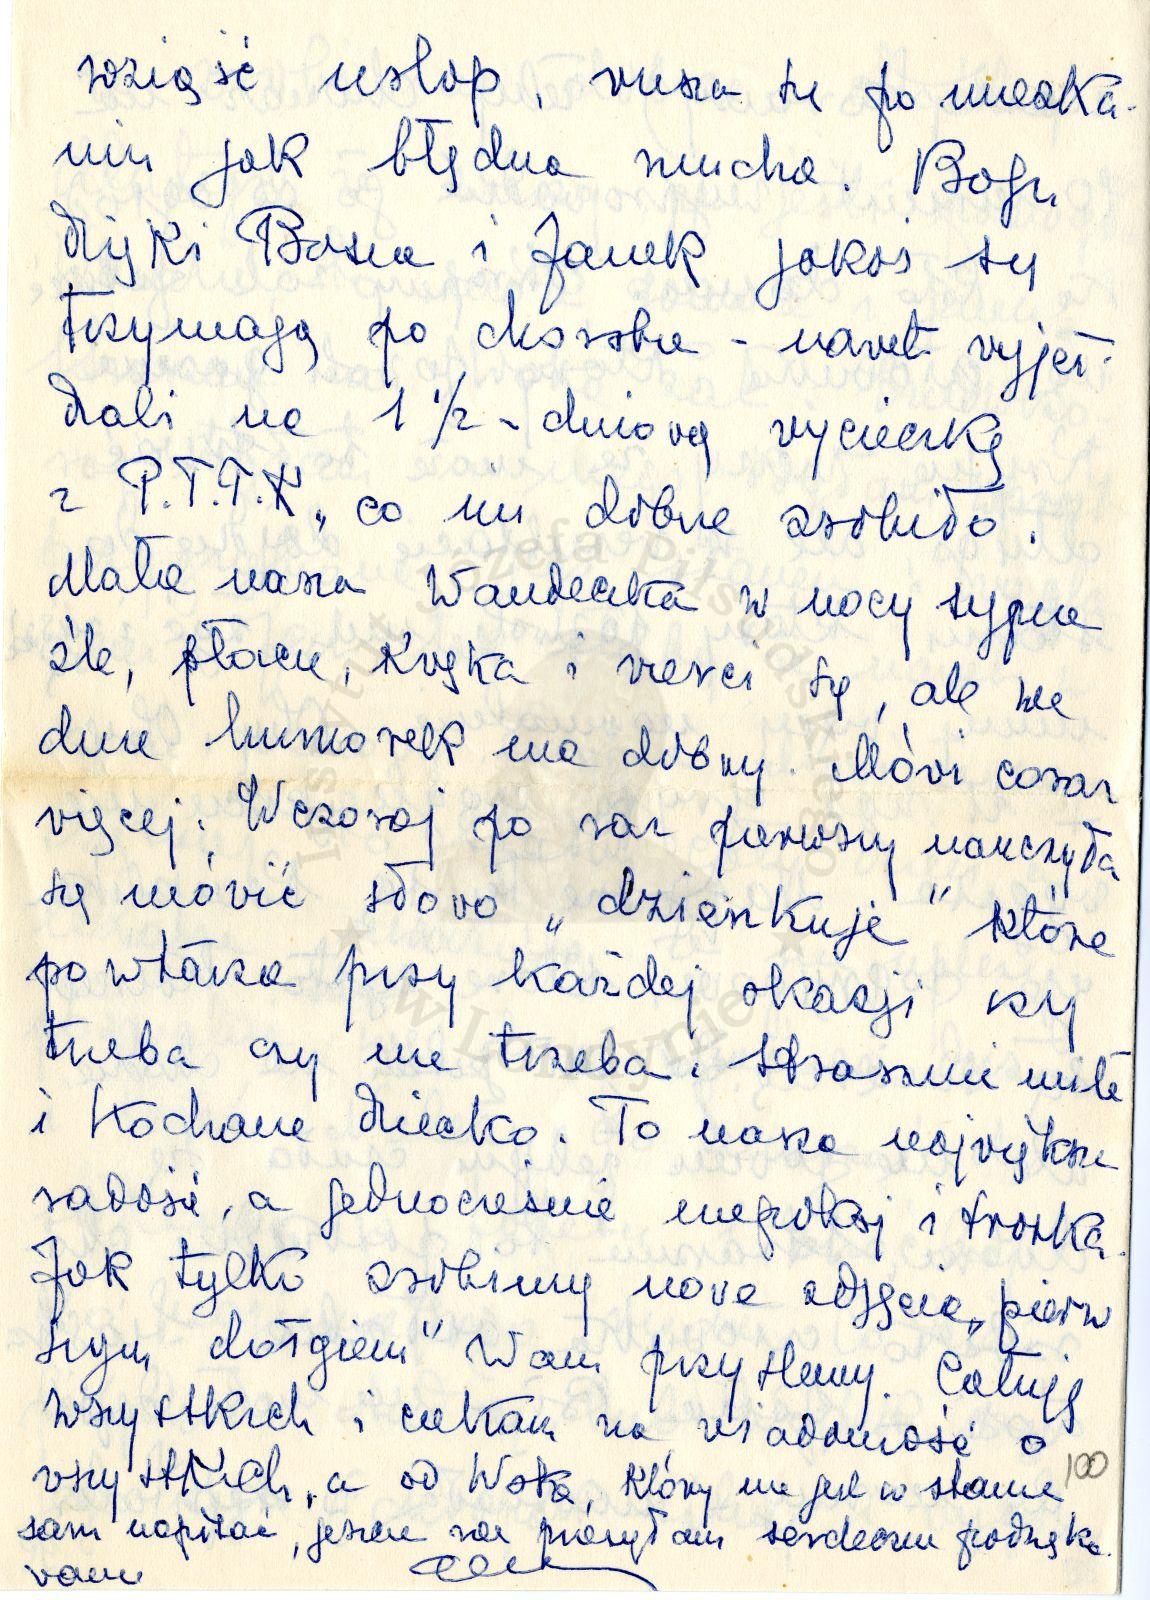 wziąść urlop, rusza się po mieszka-
niu jak błędna mucha. Bogu
dzięki Basia i Janek jakoś się
trzymają po chorobie - nawet wyjeż-
dżali na 1 1/2 - dniową wycieczkę
z P.T.T.K, co im dobrze zrobiło.
Mała nasza Wandeczka w nocy sypia
źle, płacze, stęka i wierci się, ale we
dnie humorek ma dobry. Mówi coraz
więcej. Wczoraj po raz pierwszy nauczyła
się mówić słowo „dzienkuje” które
powtarza przy każdej okazji czy
trzeba czy nie trzeba. Strasznie miłe
i kochane dziecko. To nasza największa
radość, a jednocześnie niepokój i troska.
Jak tylko zrobimy nowe zdjęcia, „pierw
szym dołgiem” Wam przyślemy. Całuję
wszystkich i czekam na wiadomość o
wszystkich, a od, który nie jest w stanie
sam napisać, jeszcze raz przesyłam serdeczne podzięko
wanie
100
Instytut Józefa Piłsudskiego
w Londynie